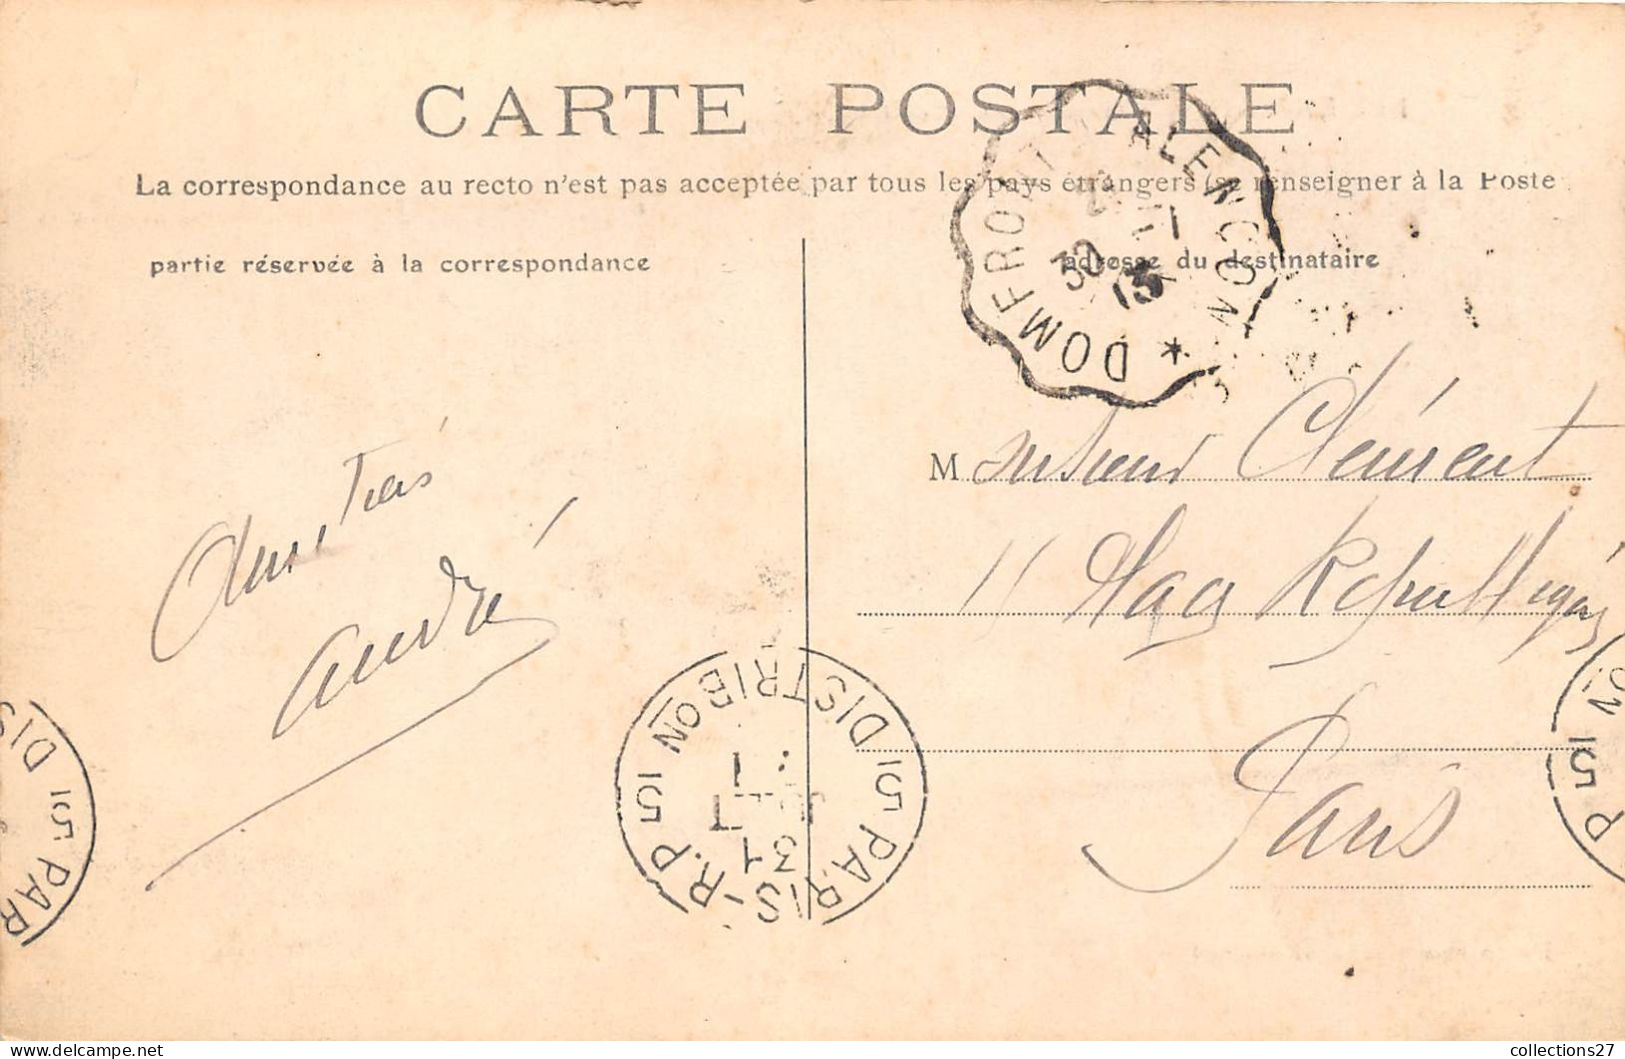 CARTE POSTALE
La correspondance au recto n'est pas acceptée par tous les pays étrangers (se renseigner à la Poste
partie réservée à la correspondance
adresse du destinataire
DOMFRONT A ALENCON *
30
13
Monsieur Clément
Paris
Amitiés
André
PARIS R.P 15 DISTRIBON 15
15 DIS
PAR
P 15 ON
collections27